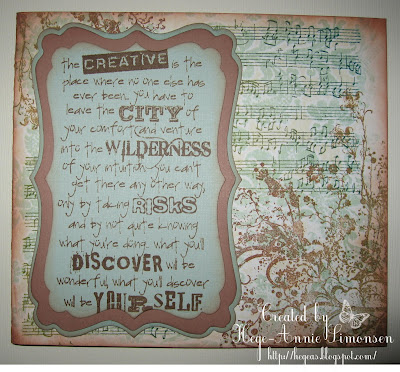 the CREATIVE is the
place where no one else has
ever been. you have to
leave the CITY of
your comfort and venture
into the WILDERNESS
of your intuition. you can't
get there any other way,
only by taking RISKS
and by not quite knowing
what you're doing. what you'll
DISCOVER will be
wonderful. what you'll discover
will be YOURSELF.
Created by
Hege-Annie Simonsen
http://hegeas.blogspot.com/